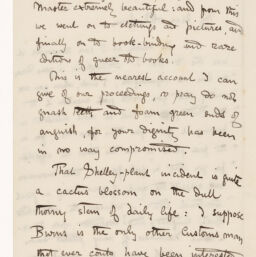 Master extremely beautiful: and from this
we went on to etchings and pictures, and
finally on to book-binding and rare
editions of queer old books.
This is the nearest account I can
give of our proceedings, so pray do not
gnash teeth and foam green suds of
anguish, for your dignity has been
in no way compromised.
That Shelley-plant incident is quite
a cactus blossom on the dull
thorny stem of daily life: I suppose
Burns is the only other Customs man
that ever could have been interested